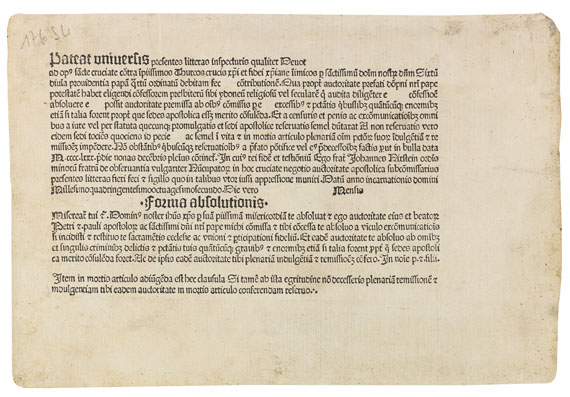 17.6.34
Pateat universis presentes litteras inspecturis qualiter Devot
ad op⁹ sācte cruciate cōtra īpiissimos Thurcos crucis xp̄i et fidei xp̄iane īimicos p sāctissimū dolm nostrū dūm Sixtū
divīa providentia papā q̄rtū ordinatū debitam fec cōtributionē. Qua propt̄ auctoritate prefati dōpni nr̄i pape
potestatē habet eligendi cōfessorem presbiterū sibi ydoneū religiosū vel secularē q̄ audita diligēter e cōfessiōe
absoluere e possit auctoritate premissa ab oīb⁹ cōmissis pc̄ excessib⁹ et pctātis q̄busLibȝ quātūcūqȝ enormibȝ
etiā si talia forent propt̄ que sedes apostolica eēt merito cōsulēda. Et a censuris et penis ac excōmunicatiōibȝ omni
bus a iure vel per statuta quecunqȝ promulgatis et sedi apostolice reservatis semel dūtaxat A non reservatis vero
eidem sedi tociēs quociens id pecie ac semel ī vita et in mortis articulo plenariā oīm pctōrȝ suorȝ īdulgētiā et re
missionē īpēdere. Nō obstātib⁹ q̄buscūqȝ reservatiōib⁹ a p̄fato pōtifice vel ei⁹ p̄decessoribȝ factis put in bulla data
M.cccc.lxxx. pridie nonas decēbris plenius cōtinet̄. In cui⁹ rei fidē et testōniū Ego frat̄ Johannes Nixstein ordīs
minorū fratrū de observantia vulgarit̄ Nūcupatorȝ in hoc cruciate negotio auctoritate apostolica subcōmissarius
presentes litteras fieri feci et sigillo quo in talibus vtor iussi appressione muniri. Datū anno incarnationis domini
Millesimoquadringentesimooctuagesimosecundo. Die vero Mensis
·Forma absolutionis·
Misereat̄ tui ȝc̄. Domin⁹ noster ihūs xp̄s p suā piissimā misericordiā te absoluat et ego auctoritate eius et beatorȝ
Petri et pauli apostolorȝ ac sāctissimi dn̄i nr̄i pape michi cōmissa et tibi cōcessa te absoluo a vīculo excōmunicatiōis
si incidisti et restituo te sacramētis ecclesie ac vnioni et pticipationi fidelium. Et eadē auctoritate te absoluo ab oīnibȝ
et singulis criminibȝ delictis et pctātis tuis quātūcūqȝ gravib⁹ et enormibȝ etiā si talia forent ppt̄ q̄ sedes apostoli
ca merito cōsulēda foret. Ac de ipsis eadē auctoritate tibi plenariā indulgētiā et remissionē cōfero. In noīe p. et filii.
Item in mortis articulo adiūgēda est hec clausula Si tamē ab ista egritudine nō decesseris plenariā remissionē et
indulgentiam tibi eadem auctoritate in mortis articulo conferendam reseruo·.·